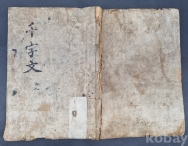 千字文
kobay